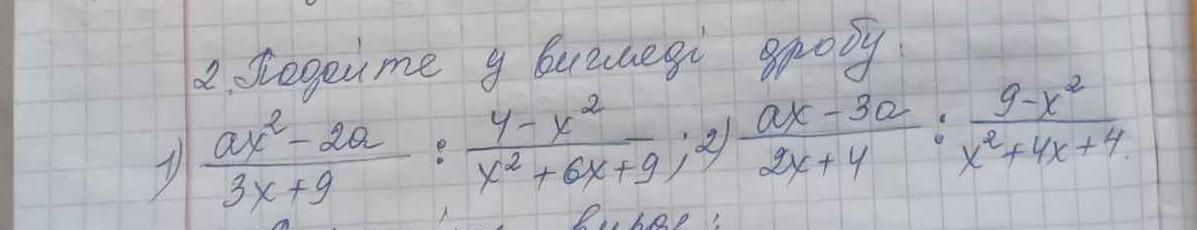 2. Подайте у вигляді дробу:
1) (ax² - 2a)/(3x + 9) : (4 - x²)/(x² + 6x + 9); 2) (ax - 3a)/(2x + 4) : (9 - x²)/(x² + 4x + 4).